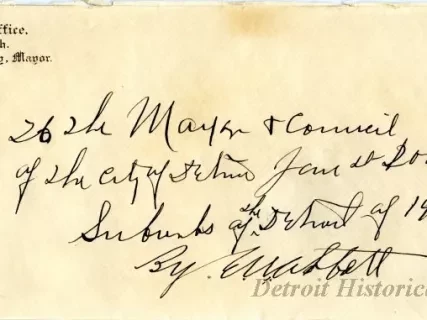 ffice.
h.
y, Mayor.
To the Mayor & Council
of the City of Detroit Jan 1st 200
Suburbs of the Detroit of 19
By
Detroit Historica